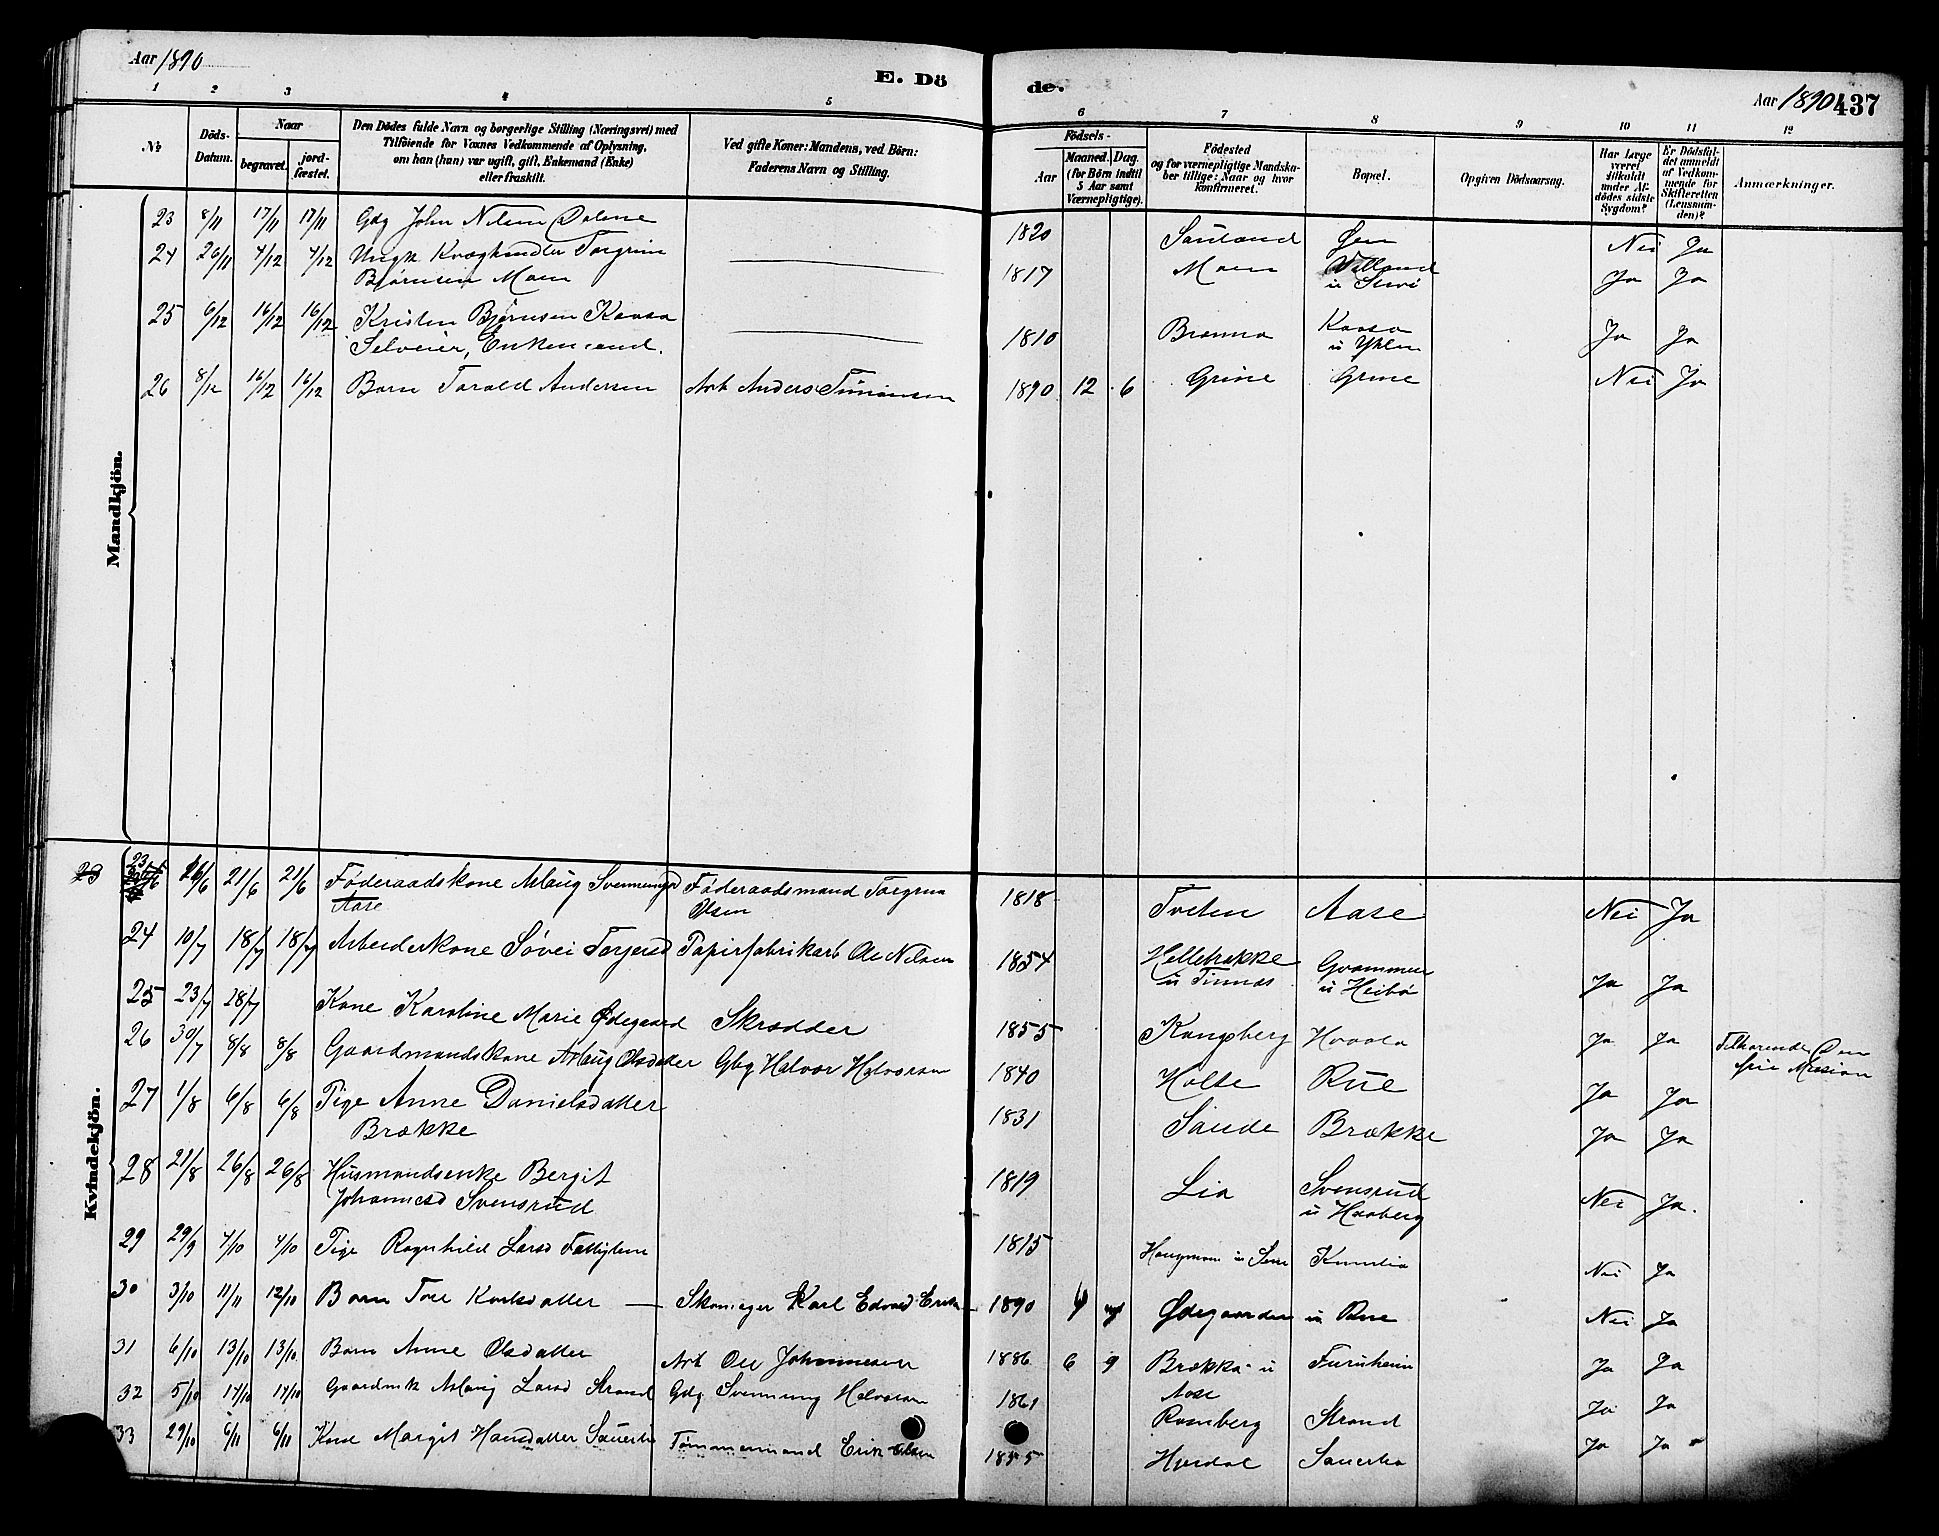 Aar 1890
E. Dö de.
Aar 1890 437
1 2 3 4 5 6 7 8 9 10 11 12
№
Döds-Datum.
Naar
begravet.
jord-fæstet.
Den Dödes fulde Navn og borgerlige Stilling (Næringsvei) med
Tilföiende for Voxnes Vedkommende af Oplysning,
om han (hun) var ugift, gift, Enkemand (Enke)
eller fraskilt.
Ved gifte Koner: Mandens, ved Börn:
Faderens Navn og Stilling.
Födsels-
Aar
Maaned. Dag.
(for Börn indtil
5 Aar samt
Værnepligtige).
Födested
og for værnepligtige Mandska-
ber tillige: Naar og hvor
konfirmeret.
Bopæl.
Opgiven Dödsaarsag.
Har Læge
været
tilkaldt
under Af-
dödes sidste
Sygdom?
Er Dödsfal-
det anmeldt
af Vedkom-
mende for
Skifteretten
(Lensman-
den)?
Anmærkninger.
Mandkjön.
23 8/11 17/11 17/11 Gdg John Nilsen 1820 Sauland Nei Ja
24 26/11 4/12 4/12 Ungk Kvæghandler Torgrim
Bjørnsen Moen 1817 Moen Ja Ja
25 6/12 16/12 16/12 Kristen Bjørnsen Kaasa
Selveier, Enkemand. 1810 Kaasa Ja Ja
26 8/12 16/12 16/12 Barn Torald Andersen Arb Anders 1890 12 6 Grine Grine Nei Ja
Kvindekjön.
23 21/6 21/6 Føderaadskone Aslaug Føderaadsmand Torgrim
Aase Olsen 1818 Tveten Aase Nei Ja
24 10/7 18/7 18/7 Arbeiderkone Søvei Torjersd Papirfabrikarb Ole Nilsen 1854 Ja Ja
25 23/7 28/7 Kone Karoline Marie Ødegaard Skrædder 1855 Kongsberg Ja Ja Tilhørende Den
frie Mission
26 30/7 8/8 8/8 Gaardmandskone Aslaug Olsdatter Gbg Halvor Halvorsen 1840 Holte Rue Ja Ja
27 1/8 6/8 6/8 Pige Anne Danielsdatter
Brække 1831 Sande Brække Ja Ja
28 21/8 26/8 26/8 Husmandsenke Bergit
Johannesd Svensrud 1819 Lia Svensrud
u Haaberg Nei Ja.
29 29/9 4/10 4/10 Pige Ragnhild Larsd Fattiglem 1815 Nei Ja
30 3/10 11/11 12/10 Barn Tone Karlsdatter Karl Edvard 1890 Ødegaarden u Rue Nei Ja
31 6/10 13/10 13/10 Barn Anne Olsdatter Arb Ole Johannesen 1886 6 9 Brække u
Aase Furuheim Ja Ja
32 5/10 17/10 17/10 Aslaug Larsd Strand Gdg Svennung Halvorsen 1861 Strand Ja Ja
33 29/10 6/11 6/11 Kone Margit Hansdatter Tømmermand Erik Olsen 1855 Ja Ja